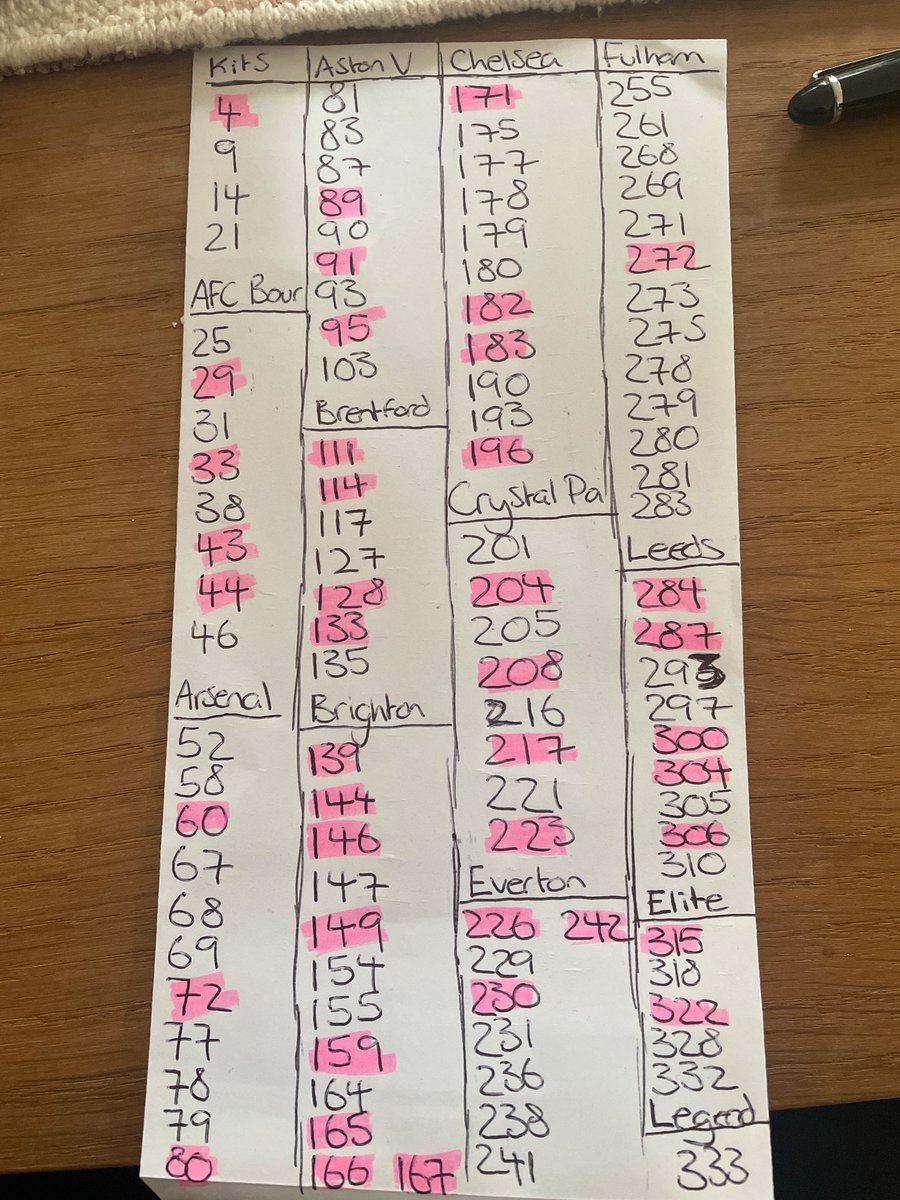 Kits
4
9
14
21
AFC Bour
25
29
31
33
38
43
44
46
Arsenal
52
58
60
67
68
69
72
77
78
79
80
Aston V
81
83
87
89
90
91
93
95
103
Brentford
111
114
117
127
128
133
135
Brighton
139
144
146
147
149
154
155
159
164
165
166 167
Chelsea
171
175
177
178
179
180
182
183
190
193
196
Crystal Pal
201
204
205
208
216
217
221
223
Everton
226 242
229
230
231
236
238
241
Fulham
255
261
268
269
271
272
273
275
278
279
280
281
283
Leeds
284
287
293
297
300
304
305
306
310
Elite
315
318
322
328
332
Legend
333